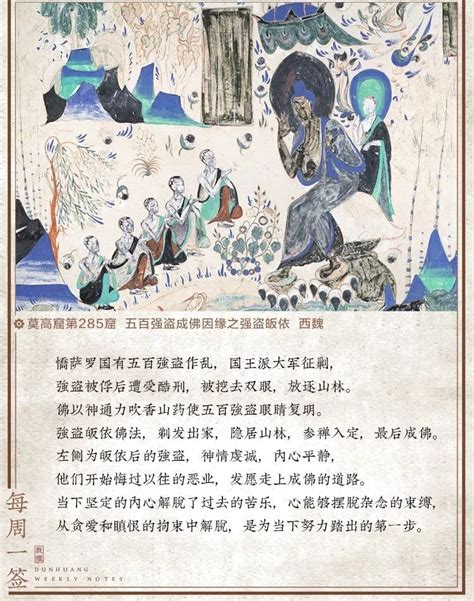 莫高窟第285窟 五百强盗成佛因缘之强盗皈依 西魏
憍萨罗国有五百强盗作乱，国王派大军征剿，
強盗被俘后遭受酷刑，被挖去双眼，放逐山林。
佛以神通力吹香山药使五百強盗眼睛复明。
強盗皈依佛法，剃发出家，隐居山林，参禅入定，最后成佛。
左侧为皈依后的強盗，神情虔诚，內心平静，
他们开始悔过以往的恶业，发愿走上成佛的道路。
当下坚定的內心解脫了过去的苦乐，心能够摆脫杂念的束缚，
从贪爱和瞋恨的拘束中解脫，是为当下努力踏出的第一步。
每周一签
DUNHUANG
WEEKLY NOTES